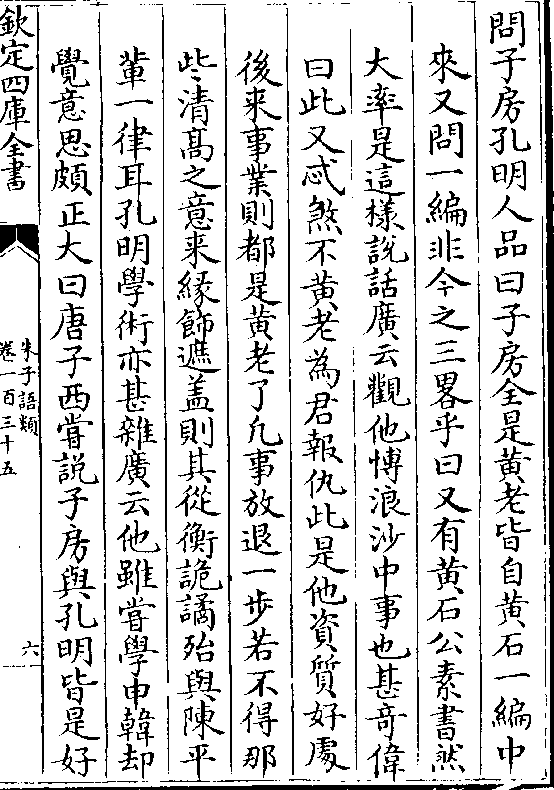 問子房孔明人品曰子房全是黄老皆自黄石一編中
來又問一編非今之三畧乎曰又有黄石公素書然
大率是這様說話廣云觀他慱浪沙中事也甚奇偉
曰此又忒煞不黄老為君報仇此是他資質好處
後来事業則都是黄老了凡事放退一步若不得那
些清髙之意来緣飾遮盖則其從衡詭譎殆與陳平
軰一律耳孔明學術亦甚雜廣云他雖嘗學申韓却
覺意思頗正大曰唐子西嘗説子房與孔明皆是好
欽定四庫全書
朱子語類
卷一百三十五
六